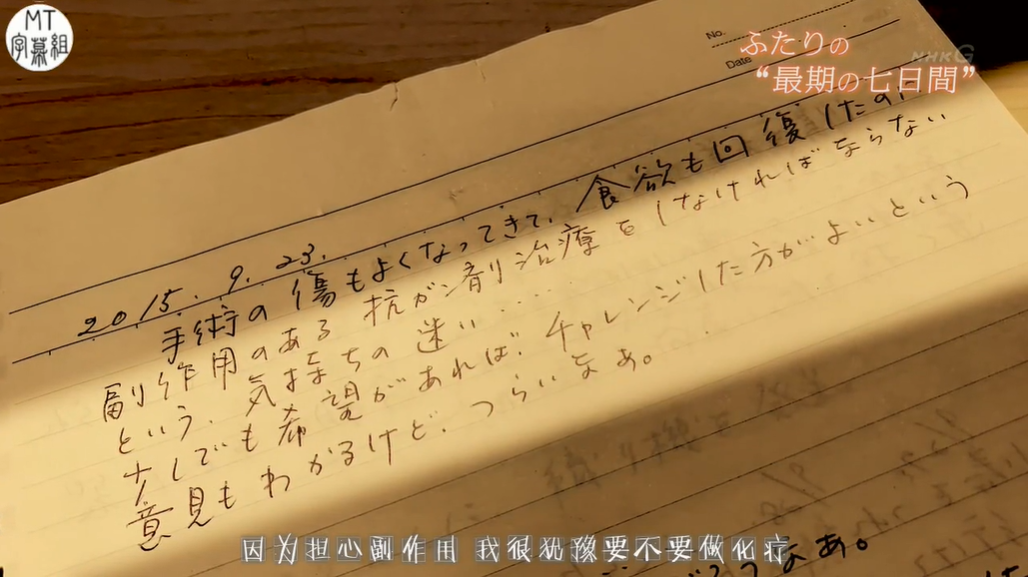 MT
字幕組
No.
Date
NHK G
ふたりの
“最期の七日間”
2015. 9. 23.
手術の傷もよくなってきて、食欲も回復したのに
副作用のある抗がん剤治療をしなければならない
という、気持ちの迷い・・・・
少しでも希望があれば、チャレンジした方がよいという
意見もわかるけど、つらいなあ。
因为担心副作用 我很犹豫要不要做化疗
なあ。